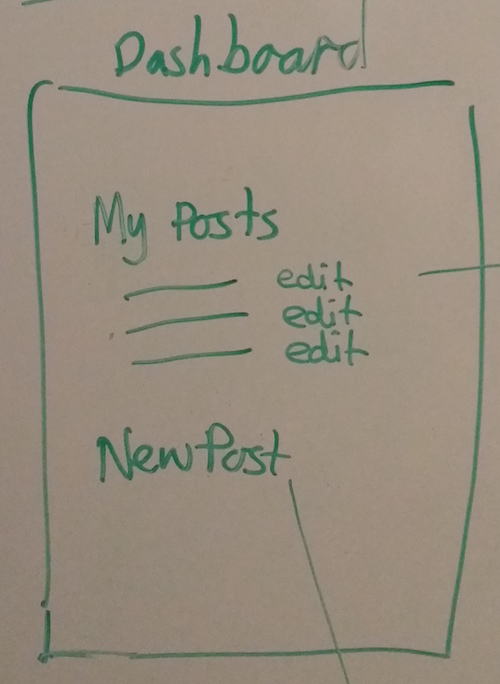 Dashboard
My Posts
edit
edit
edit
New Post